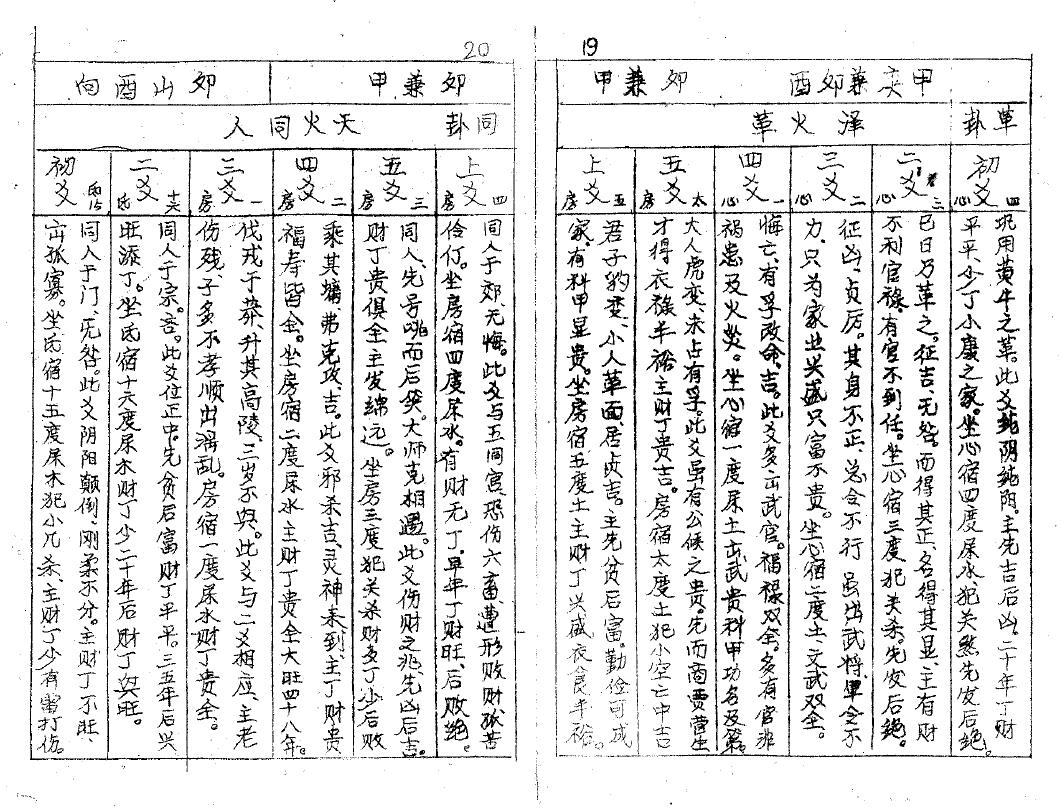 19
甲庚兼卯酉
卯兼甲
革卦
泽火革
初爻 四心
巩用黄牛之革。此爻纯阴纯阳。主先吉后凶。二十年丁财
平平、少丁小康之家。坐心宿四度尿水、犯关煞先发后绝。
二爻 三心
已日乃革之。征吉、无咎。而得其正、名得其显、主有财
不利官禄、有官不到任。坐心宿三度犯关杀。先发后绝。
三爻 二心
征凶、贞厉。其身不正、总会不行 虽出武将军会不
力、只为家业兴盛只富不贵。坐心宿二度土、文武双全。
四爻 一心
悔亡、有孚改命、吉。此爻多出武官。福禄双全。多有官非
祸患及火炎。坐心宿一度尿土出武贵科甲功名及第。
五爻 太房
大人虎变、未占有孚。此爻虽有公候之贵。先而商贾营生
才得衣禄半裕主财丁贵吉。房宿太度土犯小空亡中吉
上爻 五房
君子豹变、小人革面、居贞吉。主先贫后富。勤俭可成
家、有科甲显贵。坐房宿五度土主财丁兴盛衣食半裕。
20
卯兼甲
卯山酉向
同卦
天火同人
上爻 四房
同人于郊、无悔。此爻与五同宫、恐伤六畜遭形败财孤苦
伶仃。坐房宿四度尿水。有财无丁、早年丁财旺、后败绝。
五爻 三房
同人、先号咷而后笑。大师克相遇。此爻伤财之兆、先凶后吉。
财丁贵俱全主发绵远。坐房三度犯关杀财多丁少后败
四爻 二房
乘。其墉、弗克攻、吉。此爻邪杀吉、灵神来到、主丁财贵
福寿皆全。坐房宿二度尿水主财丁贵全大旺四十八年。
三爻 一房
伐戎于莽、升其高陵、三岁不兴。此爻与二爻相应、主老
伤残、子多不孝顺出淫乱。房宿一度尿水财丁贵全。
二爻 氐
同人于宗。吝。此爻位正中。先贫后富财丁平平。三五年后兴
旺添丁。坐氐宿十六度尿木财丁少二十年后财丁兴旺。
初爻
同人于门、无咎。此爻阴阳颠倒、刚柔不分。主财丁不旺、
出孤寡。坐氐宿十五度尿木犯小亢杀、主财丁少有雷打伤。